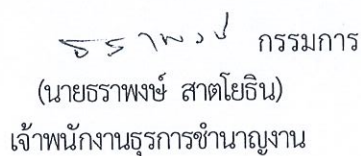 ธราพงษ์ กรรมการ
(นายธราพงษ์ สาตโยธิน)
เจ้าพนักงานธุรการชำนาญงาน